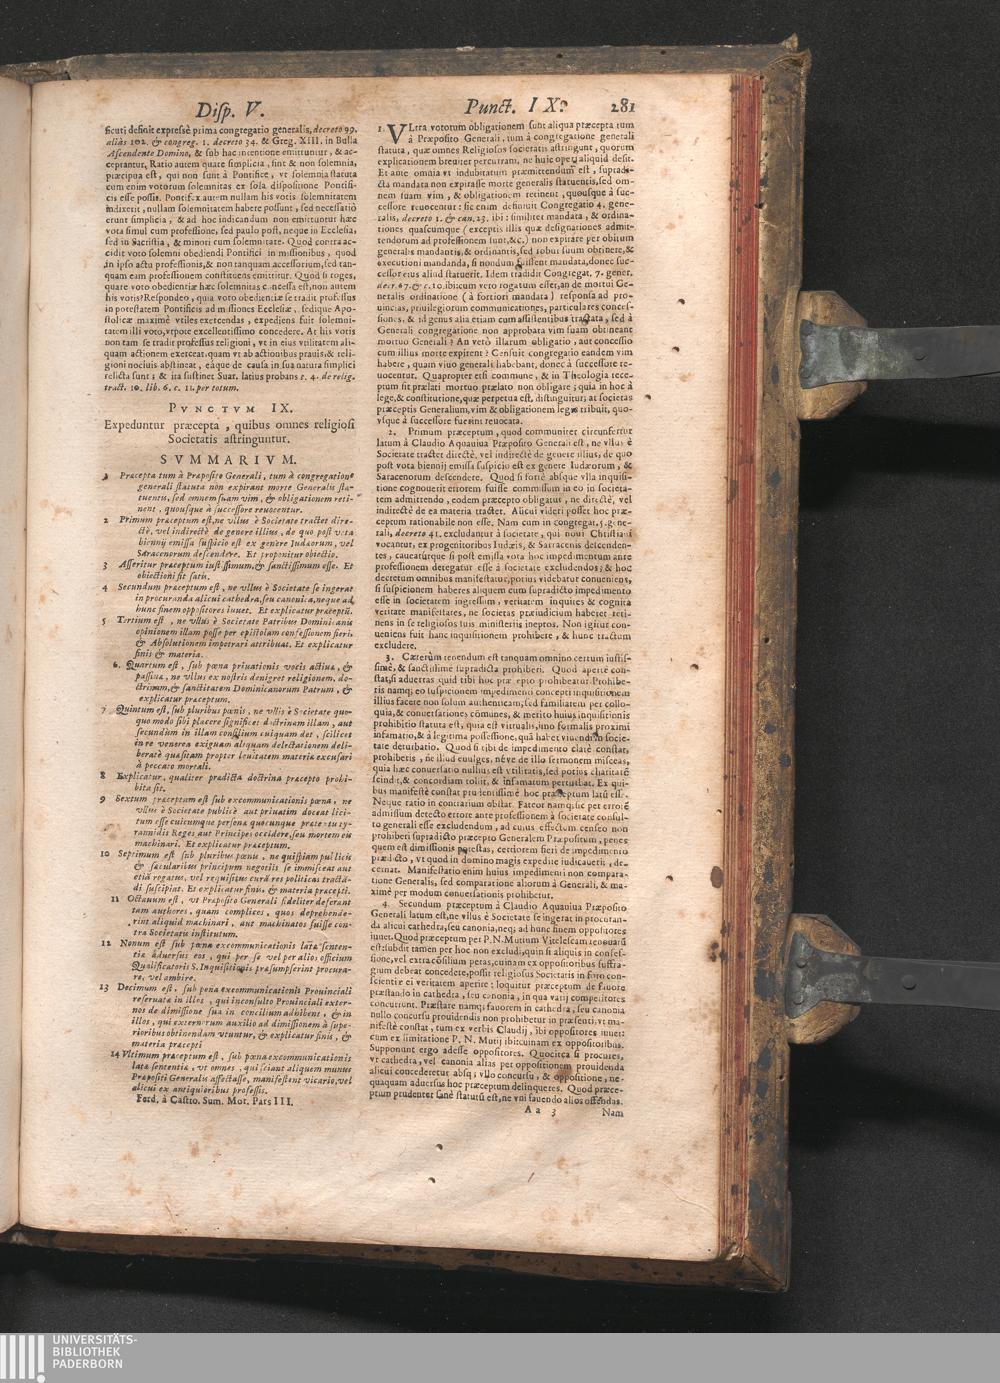 Disp. V.
Punct. IX.
281
sicuti definit expressè prima congregatio generalis, decreto 99.
aliàs 102. & congreg. 1. decreto 34. & Greg. XIII. in Bulla
Ascendente Domino, & sub hac intentione emittuntur, & ac-
ceptantur. Ratio autem quare simplicia, sint & non solemnia,
præcipua est, qui non sunt à Pontifice, vt solemnia statuta
cum enim votorum solemnitas ex sola dispositione Pontifi-
cis esse possit. Pontifex autem nullam his votis solemnitatem
indixerit, nullam solemnitatem habere possunt, sed necessariò
erunt simplicia, & ad hoc indicandum non emittuntur hæc
vota simul cum professione, sed paulo post, neque in Ecclesia,
sed in Sacristia, & minori cum solemnitate. Quod contra ac-
cidit voto solemni obediendi Pontifici in missionibus, quod
in ipso actu professionis, & non tanquam accessorium, sed tan-
quam eam professionem constituens emittitur. Quod si roges,
quare voto obedientiæ hæc solemnitas concessa est, non autem
his votis? Respondeo, quia voto obedientiæ se tradit professus
in potestatem Pontificis ad missiones Ecclesiæ, sedique Apo-
stolicæ maximè vtiles exercendas, expediens fuit solemni-
tatem illi voto, vtpote excellentissimo concedere. At his votis
non tam se tradit professus religioni, vt in eius vtilitatem ali-
quam actionem exerceat, quam vt ab actionibus prauis, & reli-
gioni nociuis abstineat, eáque de causa in sua natura simplici
relicta sunt; & ita sustinet Suar. latius probans t. 4. de relig.
tract. 10. lib. 6. c. 11. per totum.
PVNCTVM IX.
Expeduntur præcepta, quibus omnes religiosi
Societatis astringuntur.
SVMMARIVM.
1 Præcepta tum à Præposito Generali, tum à congregatione
generali statuta non expirant morte Generalis sta-
tuentis, sed omnem suam vim, & obligationem reti-
nent, quousque à successore reuocentur.
2 Primum præceptum est, ne vllus è Societate tractet dire-
ctè, vel indirectè de genere illius, de quo post vota
biennij emissa suspicio est ex genere Iudæorum, vel
Saracenorum descendere. Et proponitur obiectio.
3 Asseritur præceptum iustissimum, & sanctissimum esse. Et
obiectioni fit satis.
4 Secundum præceptum est, ne vllus è Societate se ingerat
in procuranda alicui cathedra, seu canonica, neque ad
hunc finem oppositores iuuet. Et explicatur præceptũ.
5 Tertium est, ne vllus è Societate Patribus Dominicanis
opinionem illam posse per epistolam confessionem fieri,
& Absolutionem impetrari attribuat. Et explicatur
finis & materia.
6. Quartum est, sub pœna priuationis vocis actiua, &
passiua, ne vllus ex nostris denigret religionem, do-
ctrinam, & sanctitatem Dominicanorum Patrum, &
explicatur præceptum.
7 Quintum est, sub pluribus pœnis, ne vllis è Societate quo-
quo modo sibi placere significet doctrinam illam, aut
secundum in illam consilium cuiquam det, scilicet
in re venerea exiguam aliquam delectationem deli-
beratè quæsitam propter leuitatem materiæ excusari
à peccato mortali.
8 Explicatur, qualiter prædicta doctrina præcepto prohi-
bita sit.
9 Sextum præceptum est sub excommunicationis pœna, ne
vllus è Societate publicè aut priuatim doceat lici-
tum esse cuicumque persona quocunque prætextu ty-
rannidis Reges aut Principes occidere, seu mortem eis
machinari. Et explicatur præceptum.
10 Septimum est sub pluribus pœnis, ne quispiam publicis
& sæcularibus principum negotiis se immisceat aut
etiã rogatus, vel requisitus curã res politicas tractã-
di suscipiat. Et explicatur finis, & materia præcepti.
11 Octauum est, vt Præposito Generali fideliter deferant
tam authores, quam complices, quos deprehende-
rint aliquid machinari, aut machinatos fuisse con-
tra Societatis institutum.
12 Nonum est sub pœna excommunicationis latæ senten-
tiæ aduersus eos, qui per se vel per alios officium
Qualificatoris S. Inquisitionis præsumpserint procura-
re, vel ambire.
13 Decimum est, sub pœna excommunicationis Prouinciali
reseruatæ in illos, qui inconsulto Prouinciali exter-
nos de dimissione sua in concilium adhibent, & in
illos, qui externorum auxilio ad dimissionem à supe-
rioribus obtinendam vtuntur, & explicatur finis, &
materia præcepti
14 Vltimum præceptum est, sub pœna excommunicationis
latæ sententiæ, vt omnes, qui sciant aliquem munus
Præpositi Generalis affectasse, manifestent vicario, vel
alicui ex antiquioribus professis.
Ferd. à Castro. Sum. Mor. Pars III.
1. VLtra votorum obligationem sunt aliqua præcepta tum
à Præposito Generali, tum à congregatione generali
statuta, quæ omnes Religiosos societatis astringunt, quorum
explicationem breuiter percurram, ne huic operi aliquid desit.
Et ante omnia vt indubitatum præmittendum est, supradi-
cta mandata non expirasse morte generalis statuentis, sed om-
nem suam vim, & obligationem retinent, quousque à suc-
cessore reuocentur: sic enim definiuit Congregatio 4. gene-
ralis, decreto 1. & can. 23. ibi: similiter mandata, & ordina-
tiones quascumque (exceptis illis quæ designationes admit-
tendorum ad professionem sunt, &c.) non expirare per obitum
generalis mandantis, & ordinantis, sed robur suum obtinere, &
executioni mandanda, si nondum fuissent mandata, donec suc-
cessor eius aliud statuerit. Idem tradidit Congregat. 7. gener.
decr. 67. & c. 10. ibi cum vero rogatum esset, an de mortui Ge-
neralis ordinatione (à fortiori mandata) responsa ad pro-
uincias, priuilegiorum communicationes, particulares conces-
siones, & id genus alia etiam cum assistentibus tractata, sed à
Generali congregatione non approbata vim suam obtineant
mortuo Generali? An verò illarum obligatio, aut concessio
cum illius morte expiret? Censuit congregatio eandem vim
habere, quam viuo generali habebant, donec à successore re-
uocentur. Quapropter etsi commune, & in Theologia rece-
ptum sit prælati mortuo prælato non obligare; quia in hoc à
lege, & constitutione, quæ perpetua est, distinguitur; at societas
præceptis Generalium, vim & obligationem legis tribuit, quo-
vsque à successore fuerint reuocata.
2. Primum præceptum, quod communiter circunfertur
latum à Claudio Aquauiua Præposito Generali est, ne vllus è
Societate tractet directè, vel indirectè de genere illius, de quo
post vota biennij emissa suspicio est ex genere Iudæorum, &
Saracenorum descendere. Quod si fortè absque vlla inquisi-
tione cognouerit errorem fuisse commissum in eo in societa-
tem admittendo, eodem præcepto obligatur, ne directè, vel
indirectè de ea materia tractet. Alicui videri posset hoc præ-
ceptum rationabile non esse. Nam cum in congregat. 5. gene-
rali, decreto 41. excludantur à societate, qui noui Christiani
vocantur, ex progenitoribus Iudæis, & Sarracenis descenden-
tes, caueaturque si post emissa vota hoc impedimentum ante
professionem detegatur esse à societate excludendos; & hoc
decretum omnibus manifestatur, potius videbatur conueniens,
si suspicionem haberes aliquem cum supradicto impedimento
esse in societatem ingressum, veritatem inquires & cognita
veritate manifestares, ne societas præiudicium haberet reti-
nens in se religiosos suis ministeriis ineptos. Non igitur con-
ueniens fuit hanc inquisitionem prohibere, & hunc tractum
excludere.
3. Cæterùm tenendum est tanquam omnino certum iustis-
simè, & sanctissimè supradicta prohiberi. Quod apertè con-
stat, si aduertas quid tibi hoc præcepto prohibeatur. Prohibe-
ris namq; eo suspicionem impedimenti concepti inquisitionem
illius facere non solum authenticam, sed familiarem per collo-
quia, & conuersationes cõmunes, & merito huius inquisitionis
prohibitio statuta est, quia est virtualis, imo formalis proximi
infamatio, & à legitima possessione, quã habet viuendi in socie-
tate deturbatio. Quod si tibi de impedimento clarè constat,
prohiberis, ne illud euulges, néve de illo sermonem misceas,
quia hæc conuersatio nullius est vtilitatis, sed potius charitatẽ
scindit, & concordiam tollit, & infamatum perturbat. Ex qui-
bus manifestè constat prudentissimè hoc præceptum latũ esse.
Neque ratio in contrarium obstat. Fateor namq; sic per errorẽ
admissum detecto errore ante professionem à societate consul-
to generali esse excludendum, ad cuius effectum censeo non
prohiberi supradicto præcepto Generalem Præpositum, penes
quem est dimissionis potestas, certiorem fieri de impedimento
prædicto, vt quod in domino magis expedire iudicauerit, de-
cernat. Manifestatio enim huius impedimenti non compara-
tione Generalis, sed comparatione aliorum à Generali, & ma-
ximè per modum conuersationis prohibetur.
4. Secundum præceptum à Claudio Aquauiua Præposito
Generali latum est, ne vllus è Societate se ingerat in procuran-
da alicui cathedra, seu canonia, neq; ad hunc finem oppositores
iuuet. Quod præceptum per P. N. Mutium Vitelescum renouatũ
est: subdit tamen per hoc non excludi, quin si aliquis in confes-
sione, vel extra cõsilium petas, cuinam ex oppositoribus suffra-
gium debeat concedere, possit religiosus Societatis in foro con-
scientiæ ei veritatem aperire; loquitur præceptum de fauore
præstando in cathedra, seu canonia, in qua varij competitores
concurrunt. Præstare namq; fauorem in cathedra, seu canonia
nullo concursu prouidendis non prohibetur in præsenti, vt ma-
nifestè constat, tum ex verbis Claudij, ibi oppositores iuuet:
cum ex limitatione P. N. Mutij ibi cuinam ex oppositoribus.
Supponunt ergo adesse oppositores. Quocirca si procures,
vt cathedra, vel canonia alias per oppositionem prouidenda
alicui concederetur absq; vllo concursu, & oppositione, ne-
quaquam aduersus hoc præceptum delinqueres. Quod præce-
ptum prudenter sanè statutũ est, ne vni fauendo alios offẽdas.
Aa 3
Nam
UNIVERSITÄTS-
BIBLIOTHEK
PADERBORN